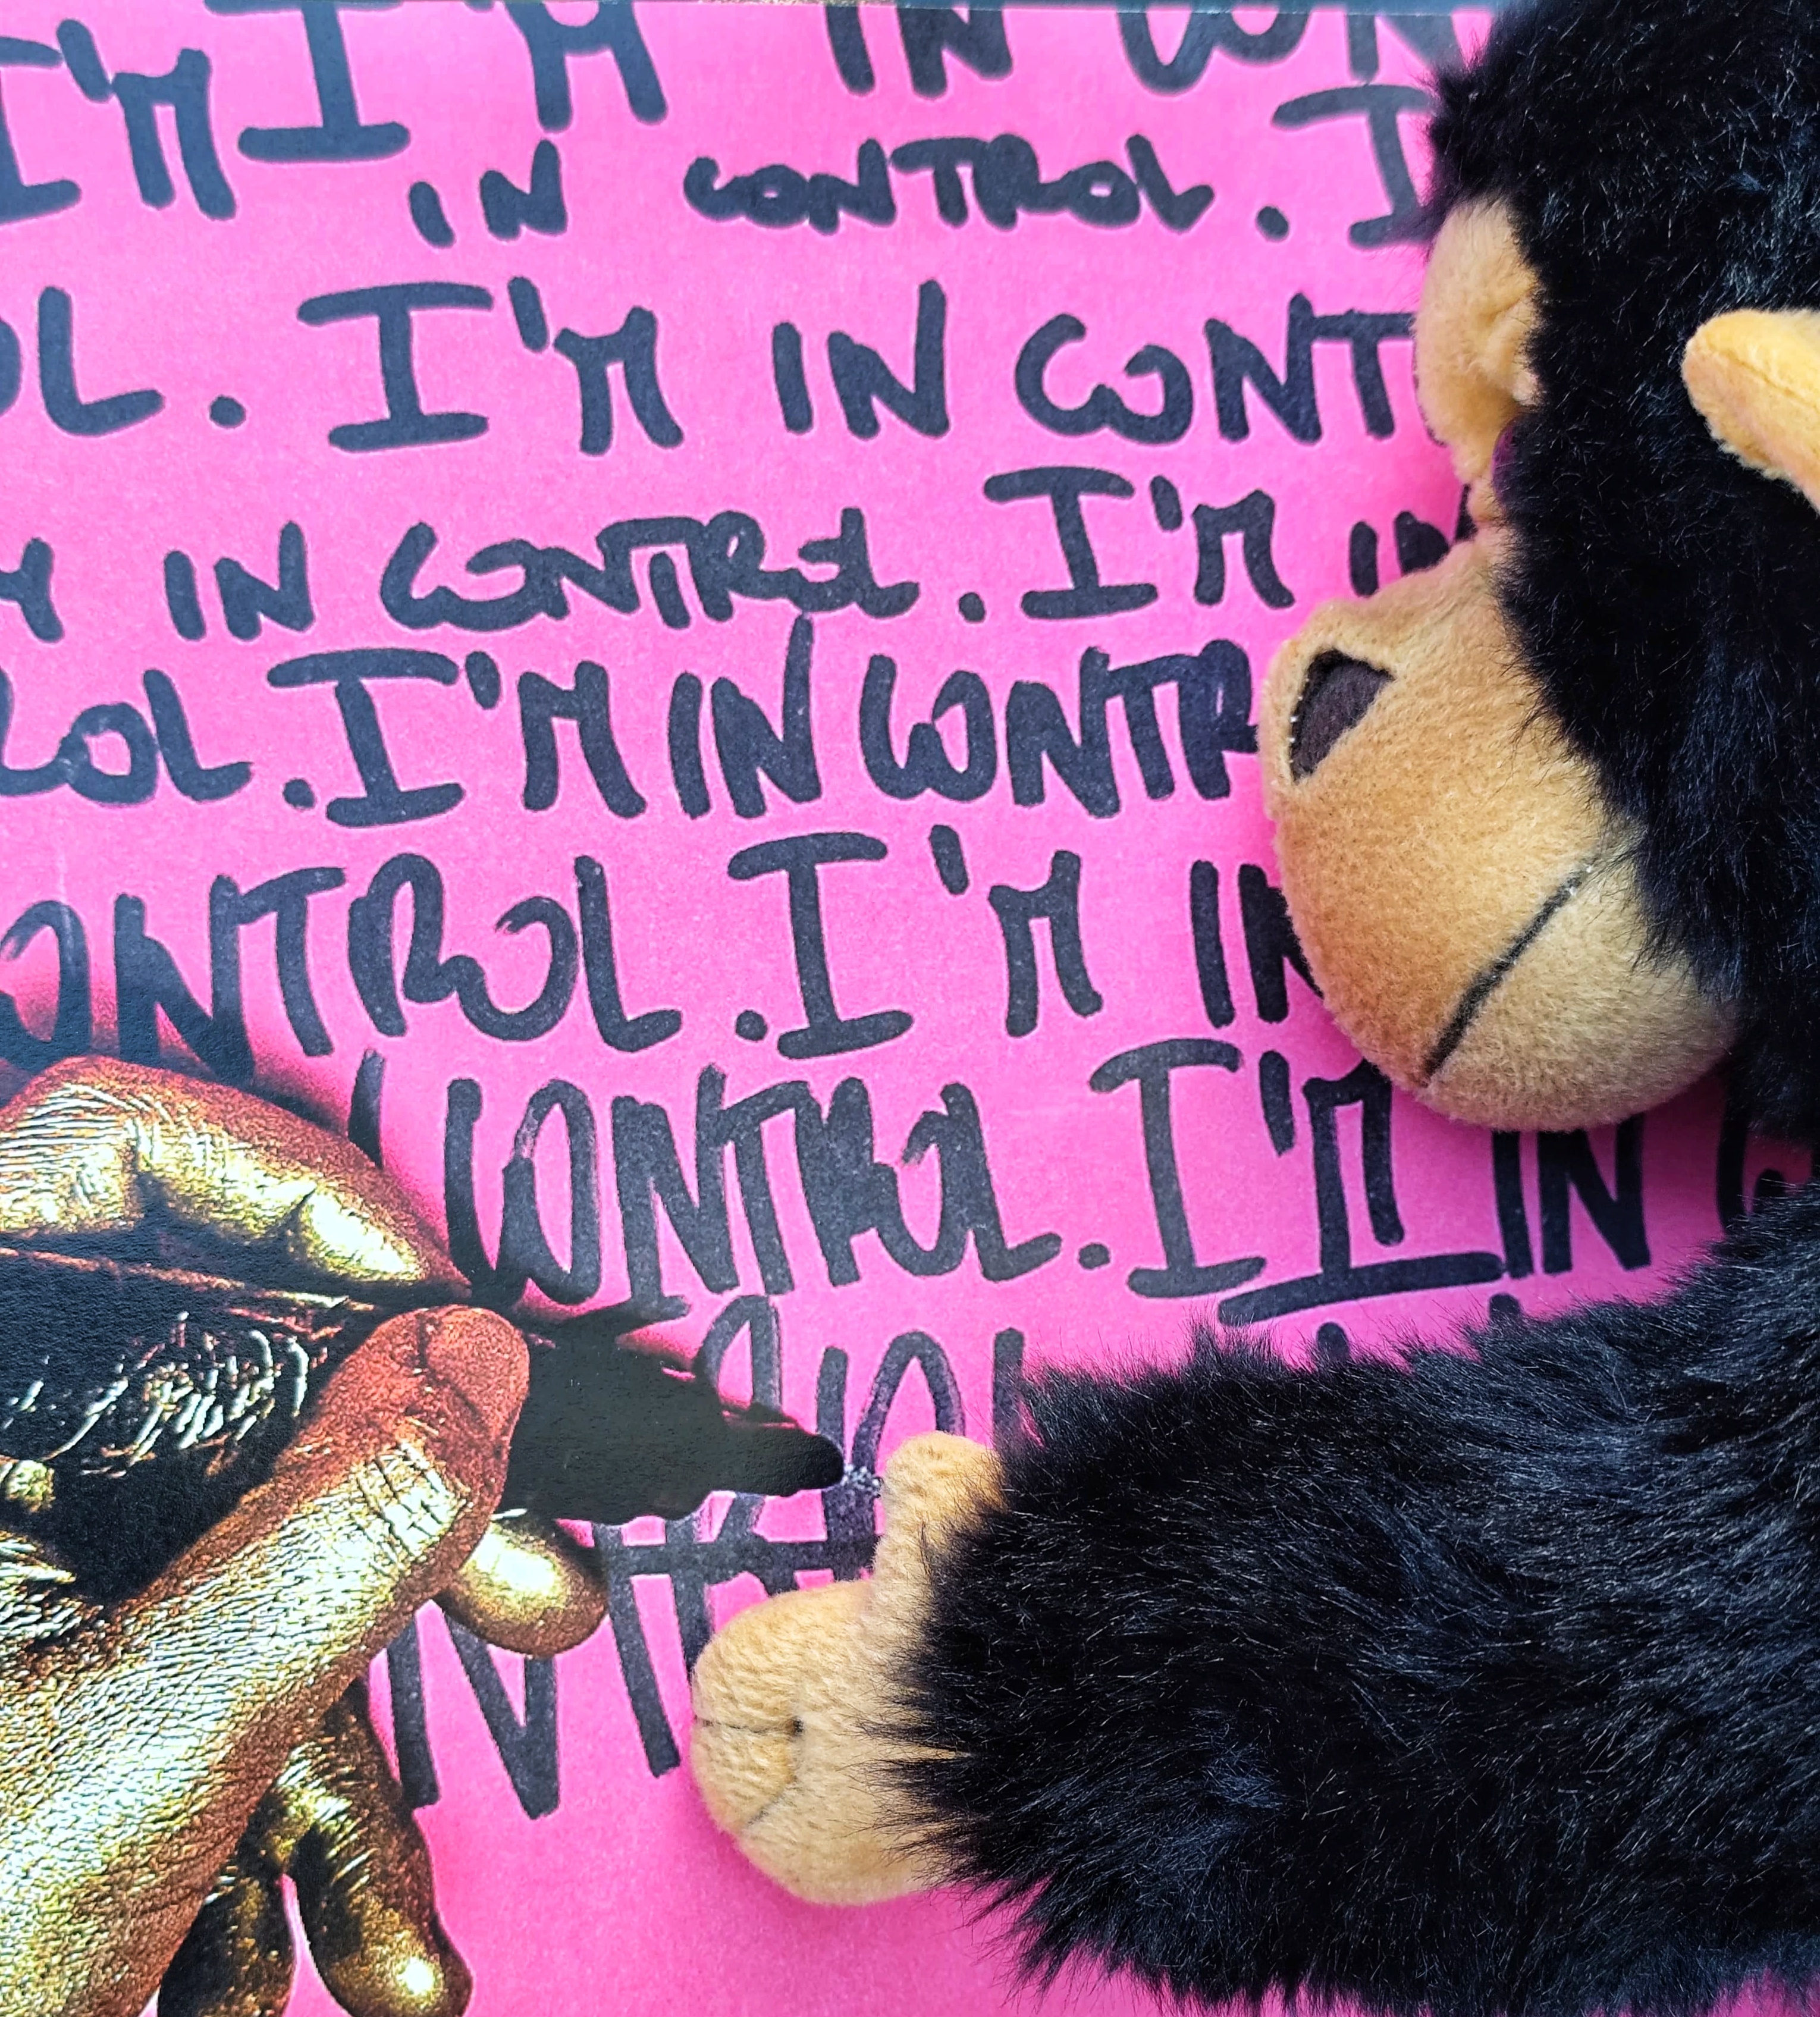 I'M I'M IN CON
IN CONTROL. I
OL. I'M IN CONT
M IN CONTROL. I'M IN
ROL. I'M IN CONTR
ONTROL. I'M IN
CONTROL. I'M IN C
ROL
NT